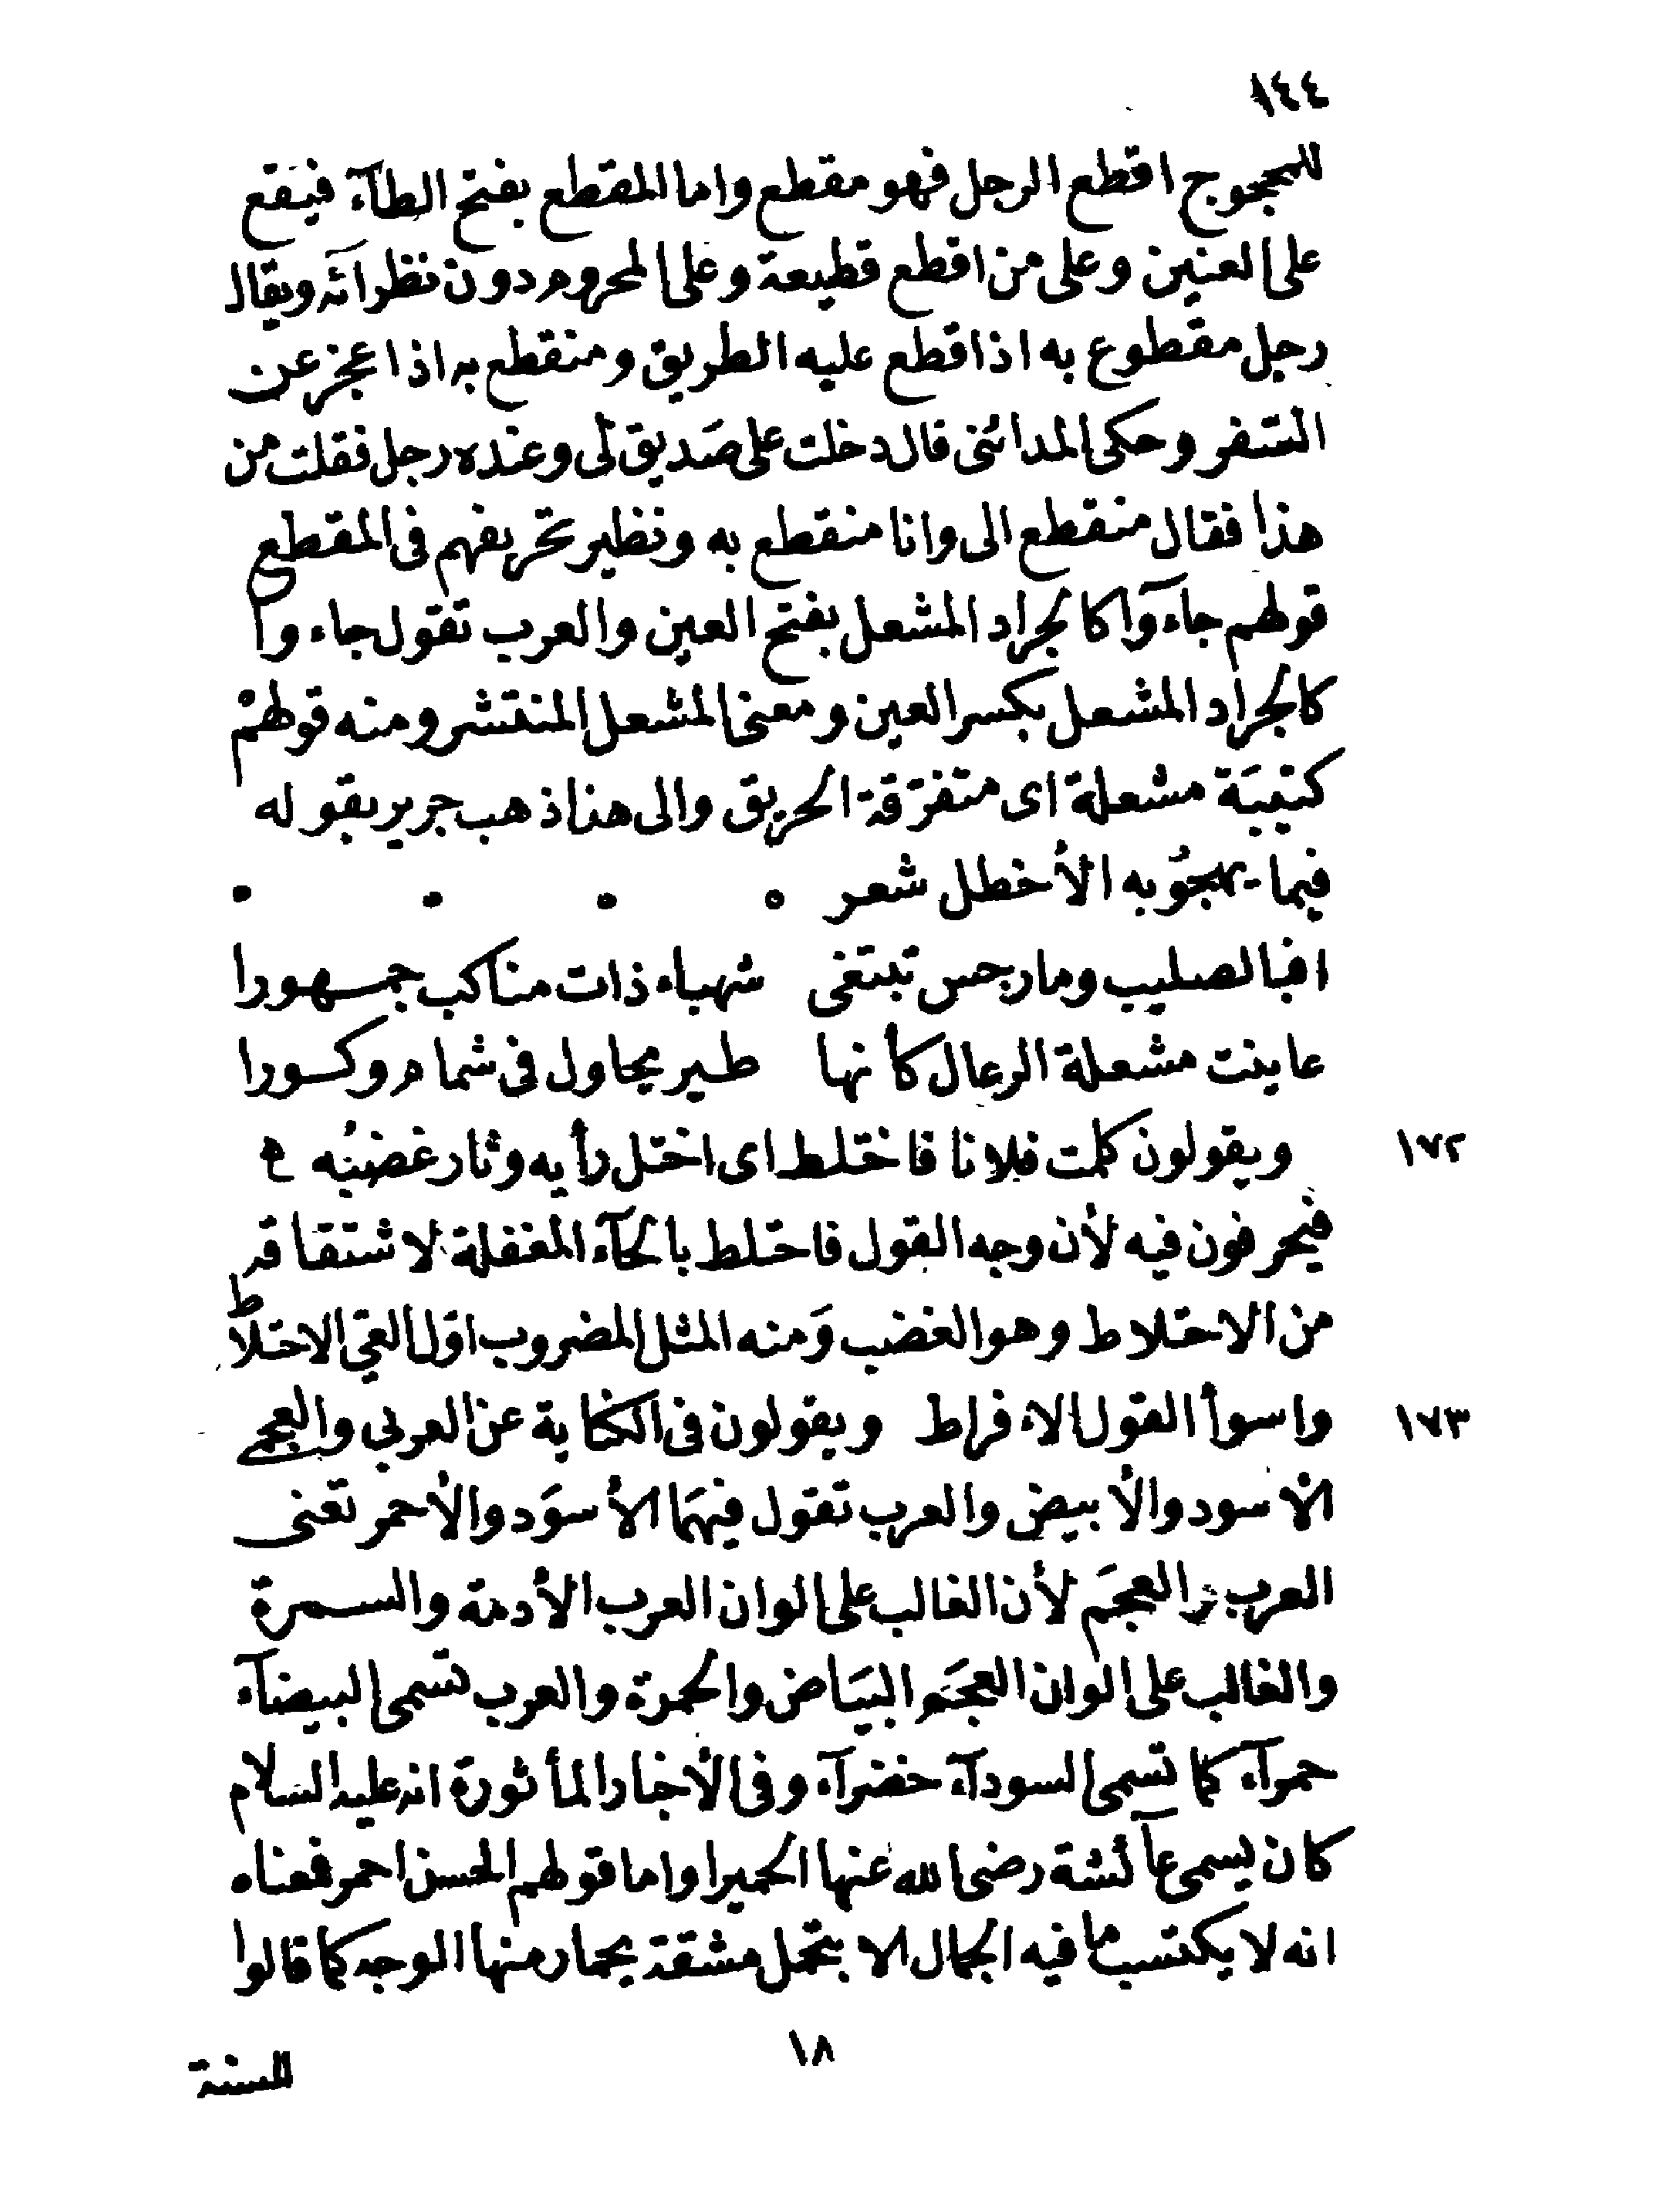 ١٤٤
للمحجوج اقطع الرجل فهو مقطع واما المقطع بفتح الطآء فيقع
على العنين وعلى من اقطع قطيعة وعلى المحروم دون نظرائه ويقال
رجل مقطوع به اذا قطع عليه الطريق ومنقطع به اذا عجز عن
السّفر وحكى المدائنى قال دخلت على صَديق لى وعنده رجل فقلت من
هذا فقال منقطع الى وانا منقطع به ونظير تحريفهم فى المقطع
قولهم جآءوآ كالجراد المشعل بفتح العين والعرب تقول جاءوا
كالجراد المشعل بكسر العين ومعنى المشعل المنتشر ومنه قولهمْ
كتيبَة مشعلة اى متفرّقة الحريق والى هذا ذهب جرير بقوله
فيما يهجُو به الأخطل شعر
افبالصليب ومارجس تبتغى شهباء ذات مناكب جمهورا
عاينت مشعلة الرعال كأنها طير يحاول فى شمام وكورا
١٧٢ ويقولون كلمت فلانا فاختلط اى اختل رأيه وثار غضبُه
فيحرفون فيه لأن وجه القول فاحتلط بالحآء المغفلة لاشتقاقه
من الاحتلاط وهو الغضب وَمنه المثل المضروب اوّل العيّ الاحتلاط
١٧٣ واسوأ القول الافراط ويقولون فى الكناية عن العربى والعجمى
الأسود والأبيض والعرب تقول فيهمَا الأسوَد والأحمر تعنى
العرب والعجَم لأن الغالب على الوان العرب الأدمة والسمرة
والغالب على الوان العجَم البيَاض والحمرة والعرب تسمى البيضآء
حمرآء كما تسمى السودآء خضرآء وفى الأخبار المأثورة انه عليه السلام
كان يسمى عآئشة رضى الله عنها الحميرا واما قولهم الحسن احمر فمعناه
انه لا يكتسب ما فيه الجمال الا بتحمل مشقة يحمار منها الوجه كما قالوا
١٨
للسنة